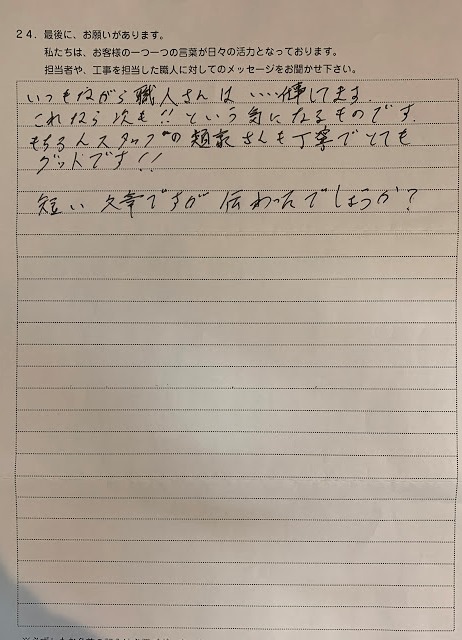 24. 最後に、お願いがあります。
私たちは、お客様の一つ一つの言葉が日々の活力となっております。
担当者や、工事を担当した職人に対してのメッセージをお聞かせ下さい。
いつもながら職人さんは いい仕事してます。
これなら次も!! という気になるものです。
もちろんスタッフの さんも丁寧でとても
グッドです!!
短い文章ですが 伝わったでしょうか?